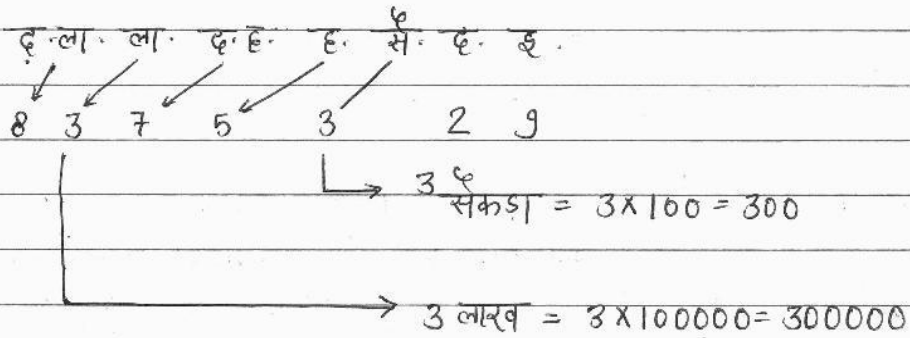 द.ला. ला. द.ह. ह. सै. द. इ.
8 3 7 5 3 2 9
3 सैकड़ा = 3×100 = 300
3 लाख = 3×100000= 300000